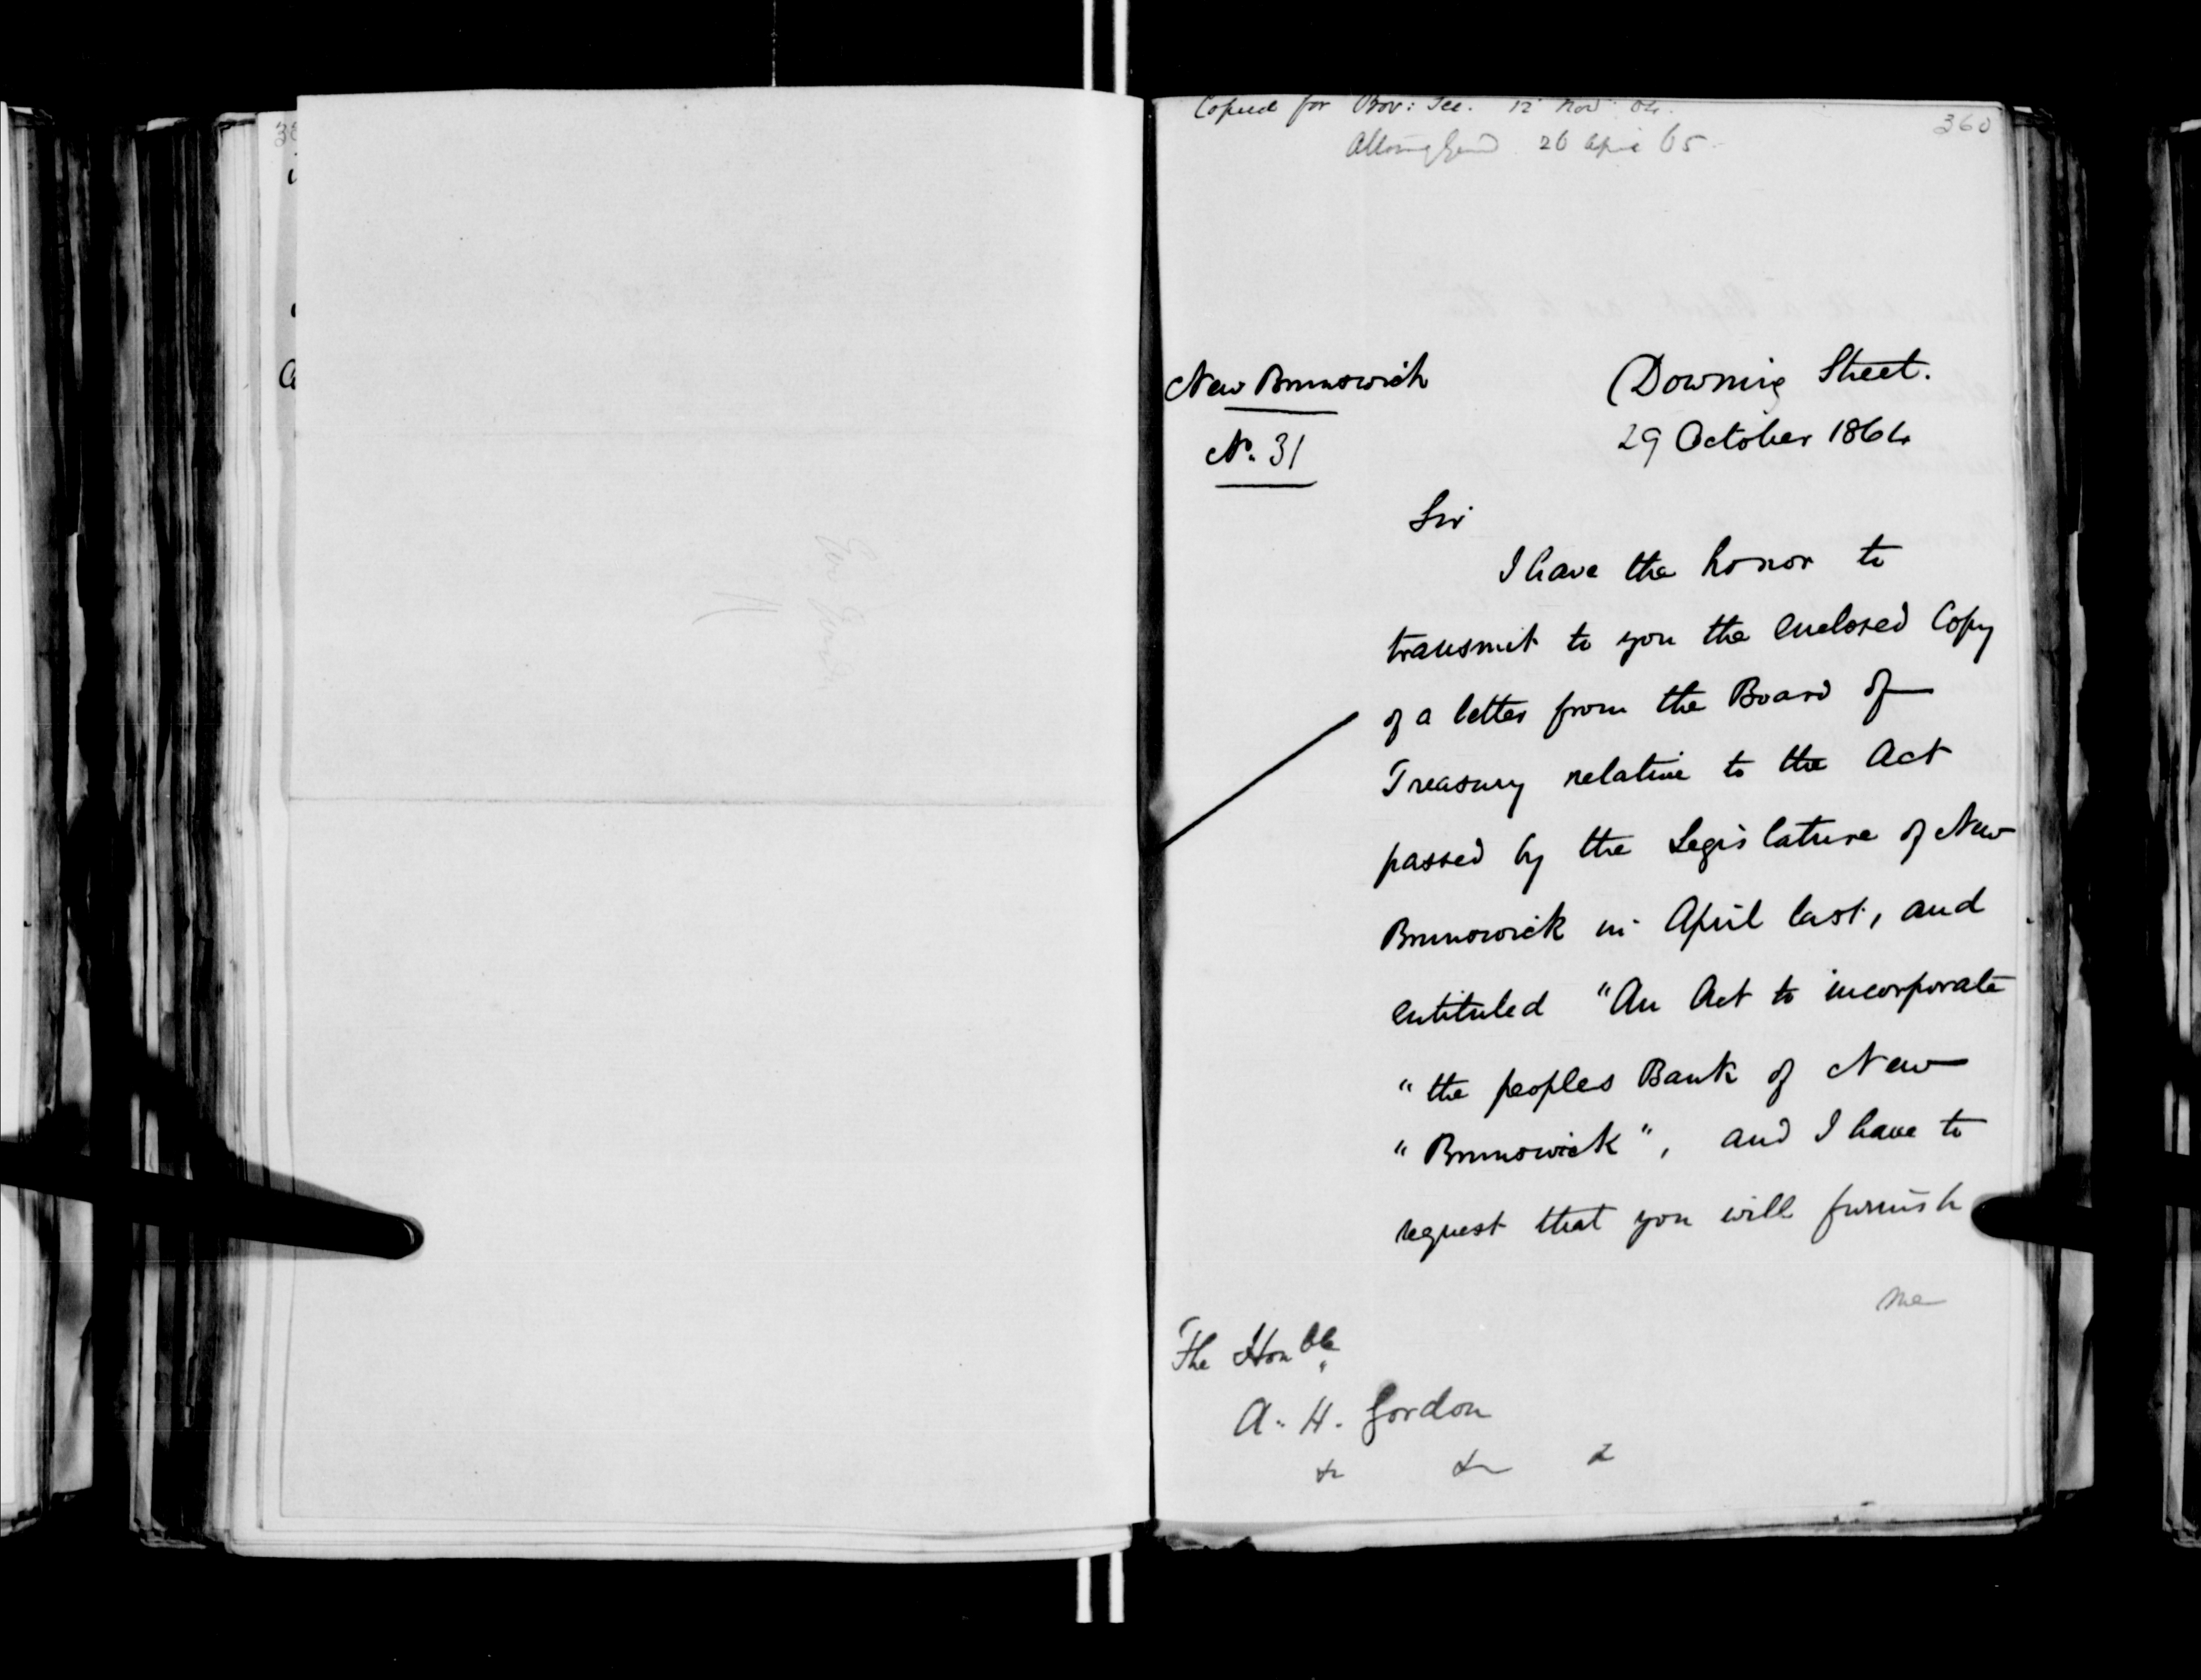 Copied for Prov: Sec. 12 Nov 64.
Attorney Genl 26 April 65.
360
New Brunswick
No. 31
Downing Street.
29 October 1864
Sir
I have the honor to
transmit to you the enclosed Copy
of a letter from the Board of
Treasury relative to the Act
passed by the Legislature of New
Brunswick in April last, and
entituled "An Act to incorporate
"the peoples Bank of New
"Brunswick", and I have to
request that you will furnish
me
The Honble
A. H. Gordon
&c &c &